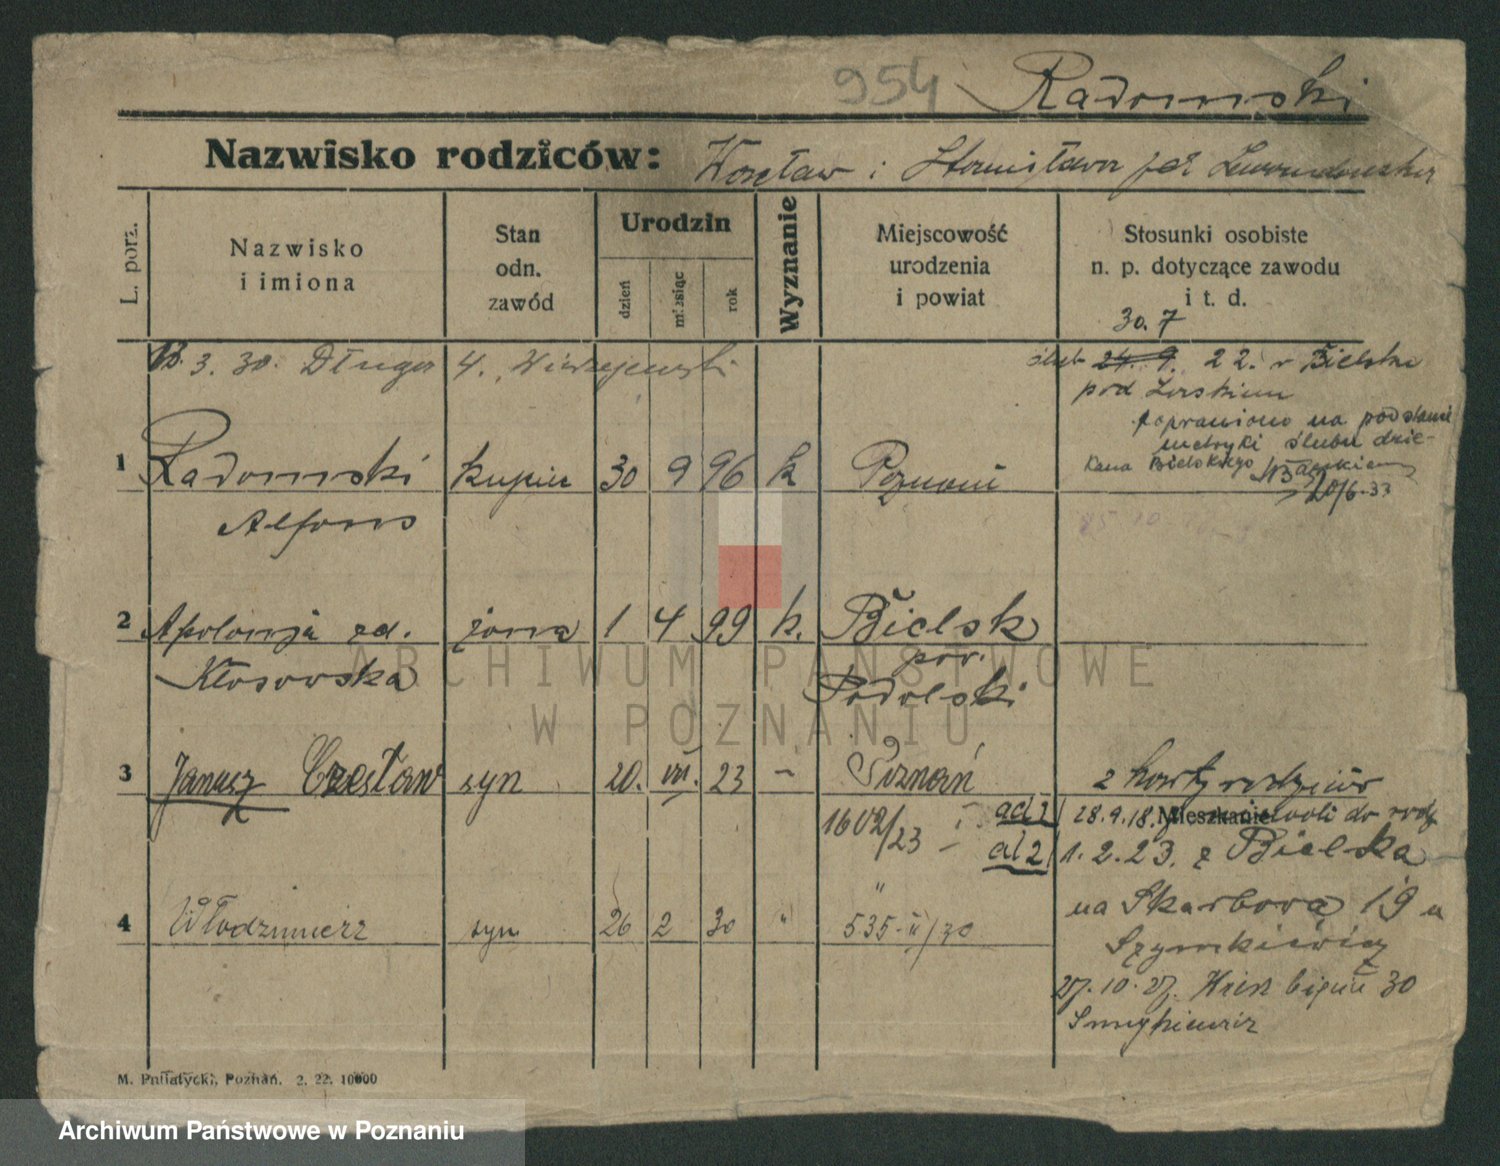 954 Radomski
Nazwisko rodziców: Wacław i Stanisława
L. porz.
Nazwisko
i imiona
Stan
odn.
zawód
Urodzin
dzień
miesiąc
rok
Wyznanie
Miejscowość
urodzenia
i powiat
Stosunki osobiste
n. p. dotyczące zawodu
i t. d.
30. 7
3. 30. Długa 4.
ślub 24. 9. 22. w Bielsku
pod
poprawiono na podstawie
metryki ślubu dzie-
kana Bielskiego
20/6.33
1 Radomski kupiec 30 9 96 k Poznań
Alfons
2 Apolonja zd. żona 1 4 99 k. Bielsk
Kłosowska
pow.
Podolski
ARCHIWUM PAŃSTWOWE
W POZNANIU
3 Janusz Czesław syn 20. VII. 23 – Poznań
1602/23
z karty rodziców
ad 1 28.9.18. Mieszkanie do rodz
ad 2 1. 2. 23. z Bielska
na Skarbowa 19 u
4 Włodzimierz syn 26 2 30 " "
535-II/30
27. 10. 27. 30
M. Putiatycki, Poznań. 2. 22. 10000
Archiwum Państwowe w Poznaniu